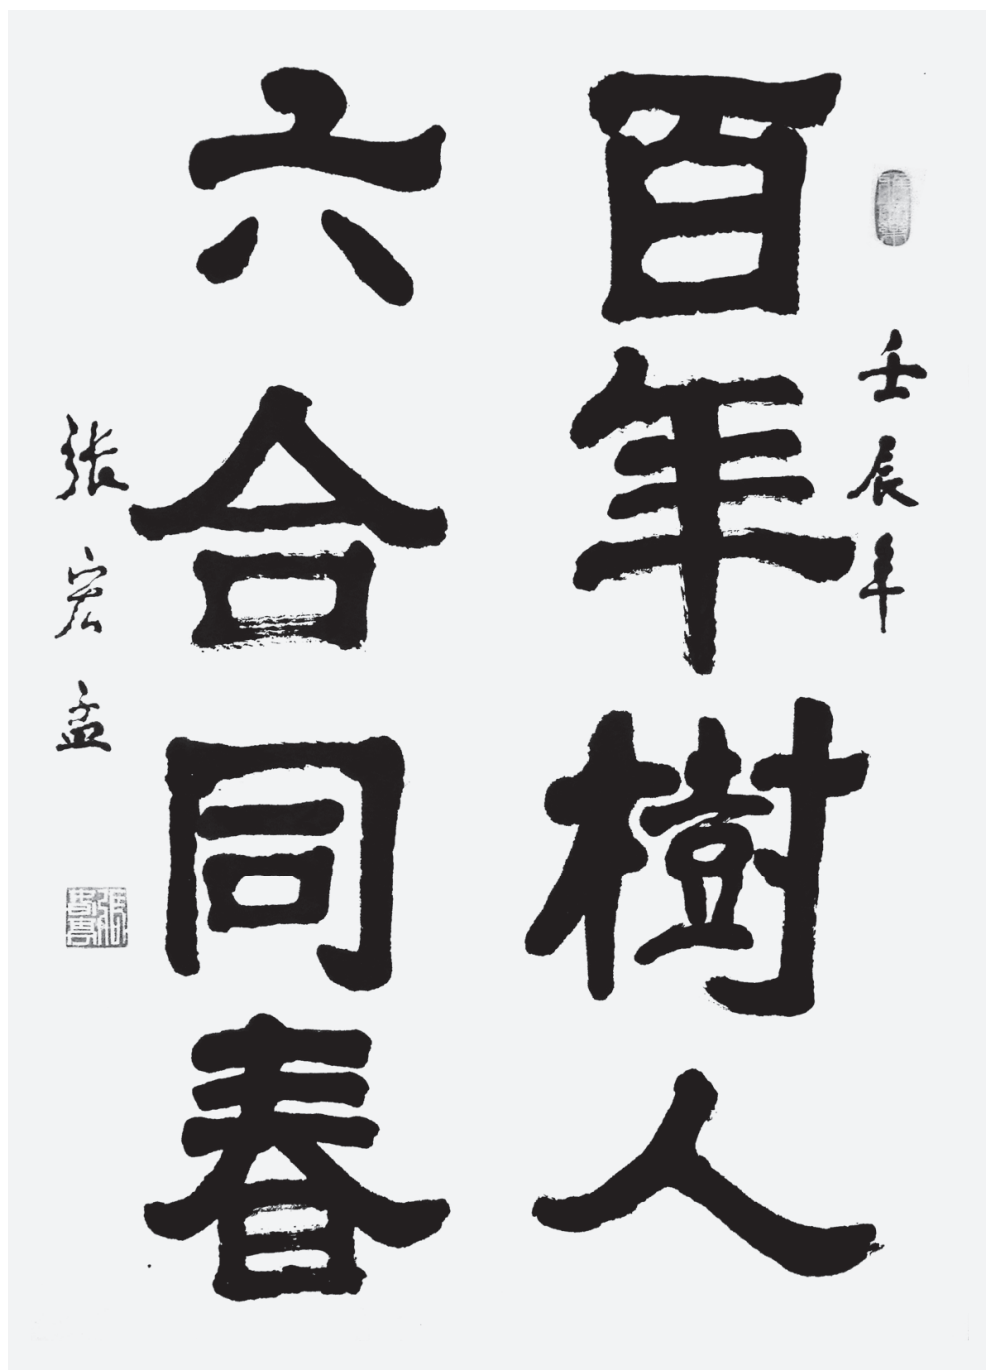 壬辰年
百年樹人
六合同春
张宏孟